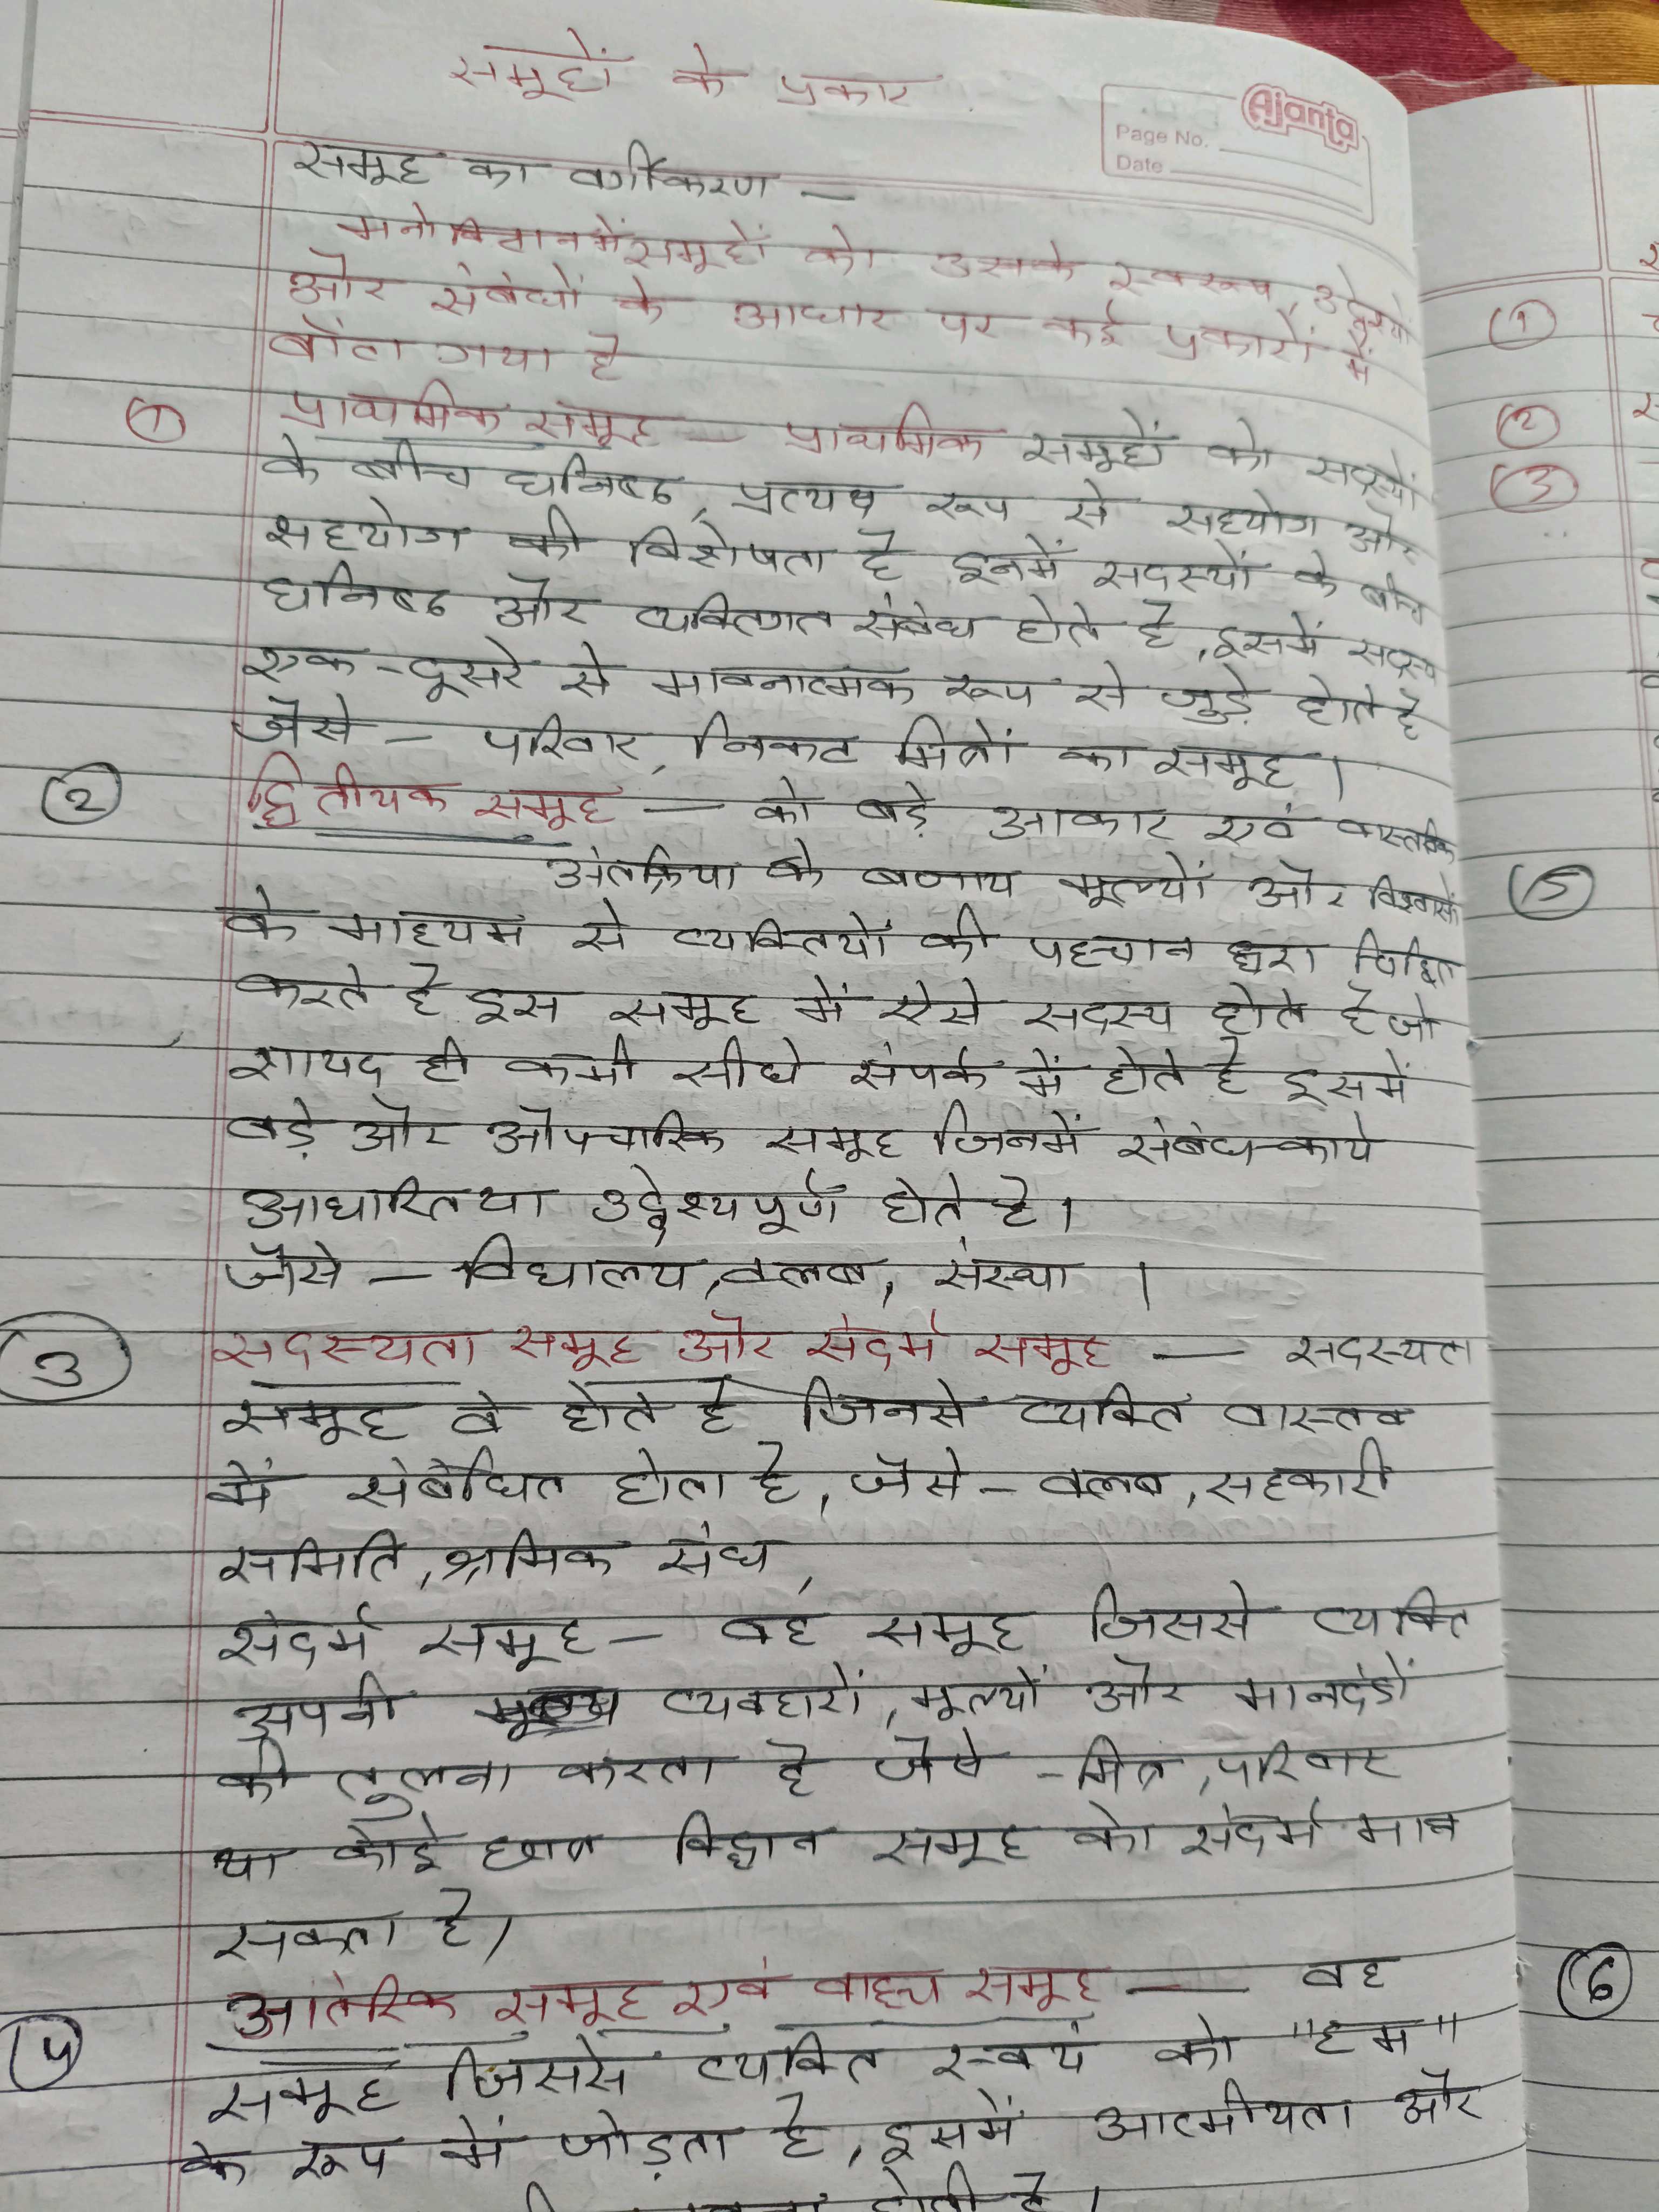 समूहों के प्रकार
Ajanta
Page No.
Date
समूह का वर्गीकरण —
मनोविज्ञान में समूहों को उसके स्वरूप, उद्देश्यों
और संबंधों के आधार पर कई प्रकारों में
बाँटा गया है
① प्राथमिक समूह — प्राथमिक समूहों को सदस्यों
के बीच घनिष्ठ, प्रत्यक्ष रूप से सहयोग और
सहयोग की विशेषता है इनमें सदस्यों के बीच
घनिष्ठ और व्यक्तिगत संबंध होते है, इसमें सदस्य
एक-दूसरे से भावनात्मक रूप से जुड़े होते है
जैसे — परिवार, निकट मित्रों का समूह।
② द्वितीयक समूह — को बड़े आकार एवं वास्तविक
अंतक्रिया के बजाय मूल्यों और विश्वासों
के माध्यम से व्यक्तियों की पहचान द्वारा चिह्नित
करते है इस समूह में ऐसे सदस्य होते है जो
शायद ही कभी सीधे संपर्क में होते है इसमें
बड़े और औपचारिक समूह जिनमें संबंध कार्य
आधारित या उद्देश्यपूर्ण होते है।
जैसे — विद्यालय, क्लब, संस्था।
③ सदस्यता समूह और संदर्भ समूह — सदस्यता
समूह वे होते है जिनसे व्यक्ति वास्तव
में संबंधित होता है, जैसे — क्लब, सहकारी
समिति, श्रमिक संघ,
संदर्भ समूह — वह समूह जिससे व्यक्ति
अपनी व्यवहारों, मूल्यों और मानदंडों
की तुलना करता है जैसे — मित्र, परिवार
या कोई छात्र विद्वान समूह को संदर्भ मान
सकता है।
④ आंतरिक समूह एवं वाह्य समूह — वह
समूह जिससे व्यक्ति स्वयं को "हम"
के रूप में जोड़ता है, इसमें आत्मीयता और
होती है।
①
②
③
⑤
⑥